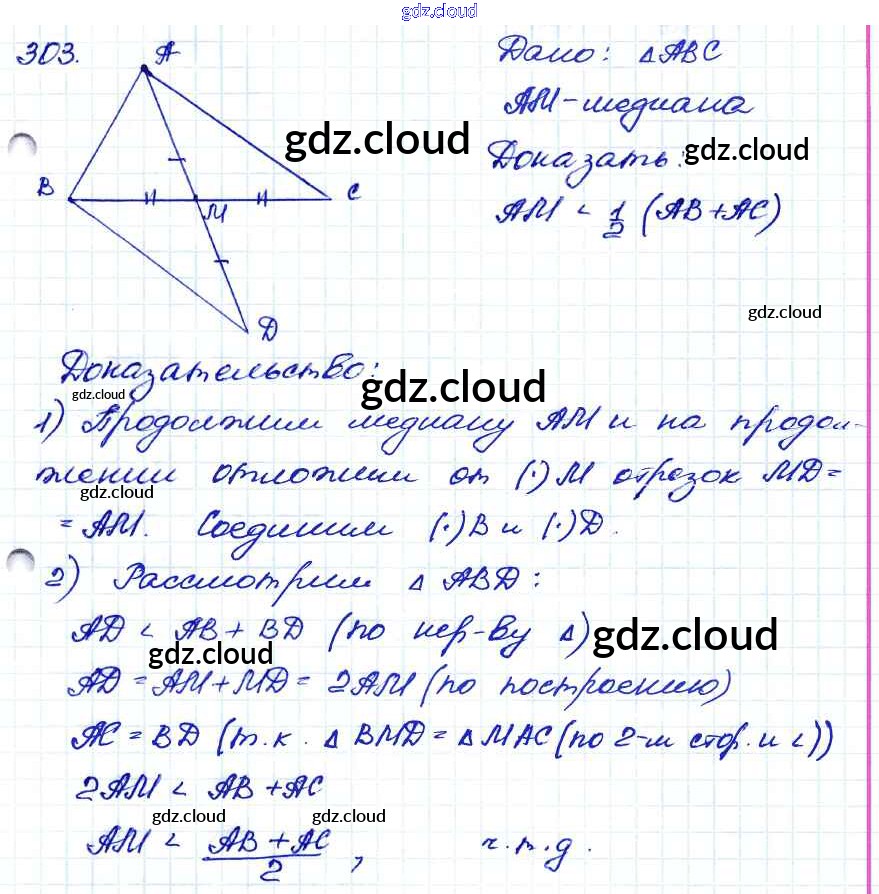 gdz.cloud
303.
A
B
C
M
D
Дано: △ABC
AM-медиана
gdz.cloud
Доказать: gdz.cloud
AM < 1/2 (AB+AC)
gdz.cloud
Доказательство:
gdz.cloud
gdz.cloud
1) Продолжим медиану AM и на продол-
жении отложим от (·) M отрезок MD=
gdz.cloud
= AM. Соединим (·) B и (·) D.
2) Рассмотрим △ ABD:
AD < AB + BD (по нер-ву △)
gdz.cloud
gdz.cloud
AD = AM+MD = 2AM (по построению)
AC = BD (т.к. △ BMD = △ MAC (по 2-м стор. и <))
2AM < AB + AC
gdz.cloud
gdz.cloud
AM < (AB + AC)/2, ч.т.д.